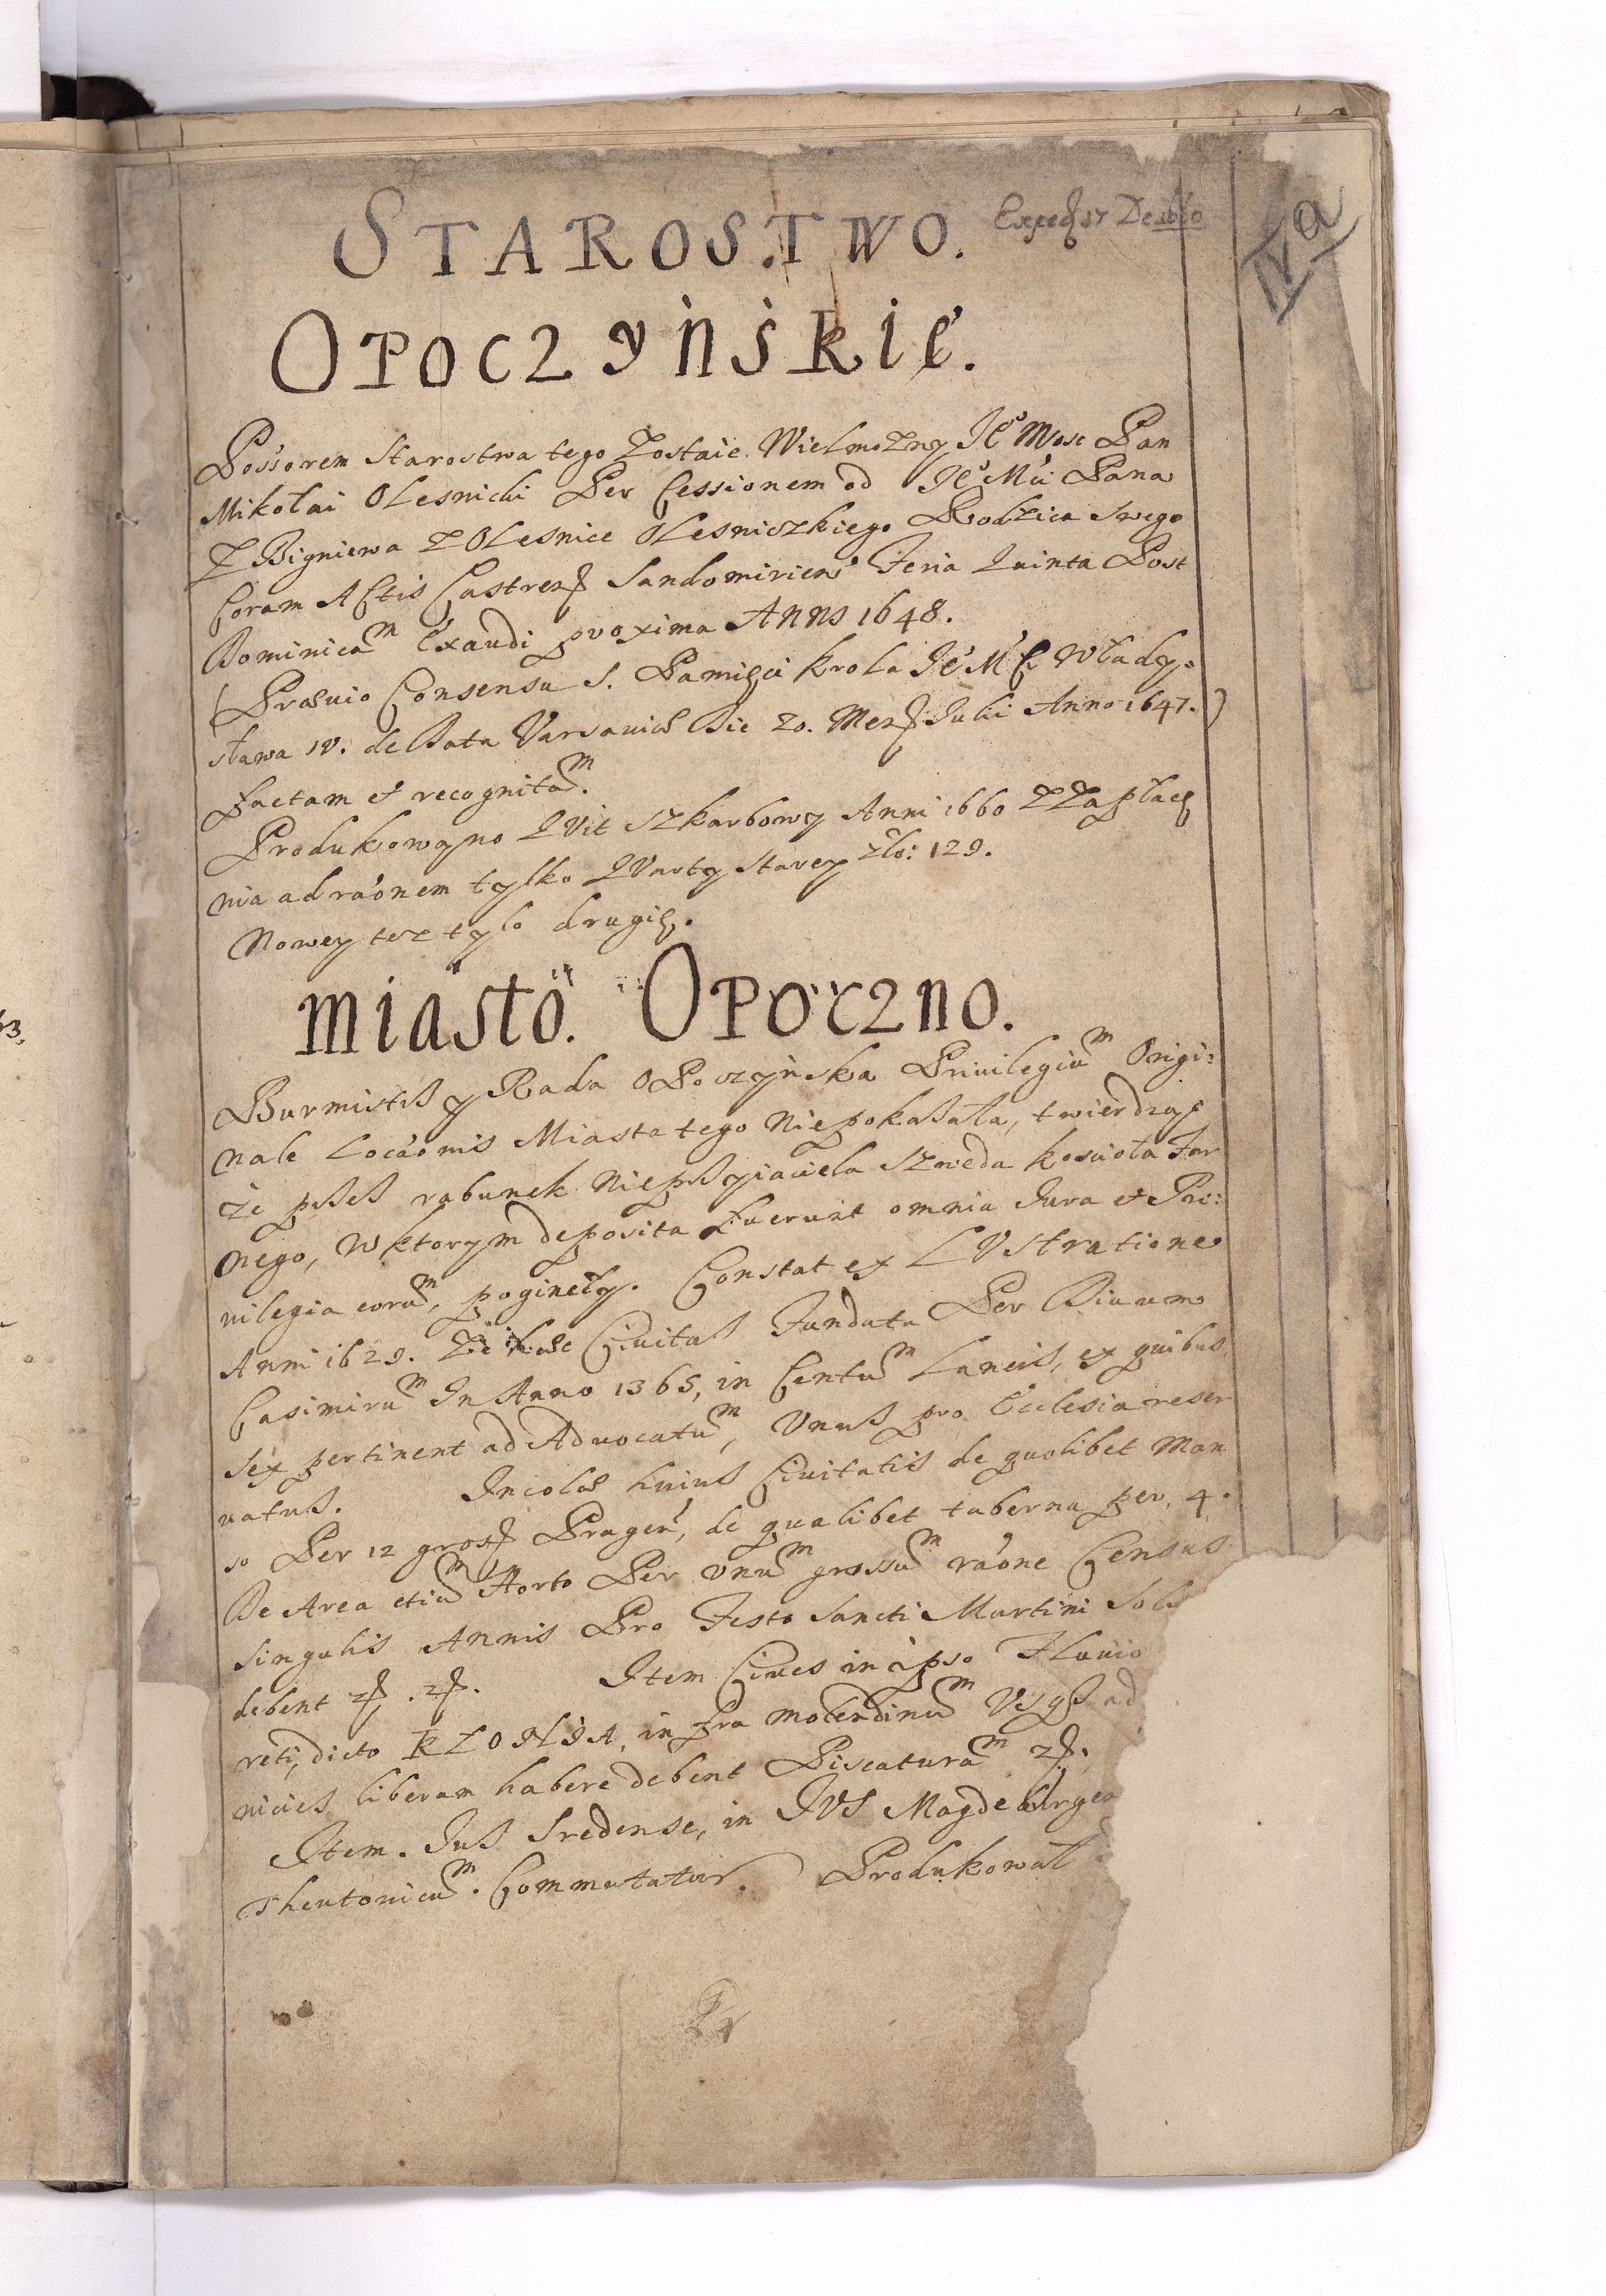 STAROSTWO.
OPOCZYŃSKIE.
Possorem Starostwa tego Zostaie. Wielmozny Je° Mosc Pan
Mikołai OLesnicki Per Cessionem od Je° Mći Pana
ZBigniewa Z OLesnice OLesniczkiego Rodzica Swego
Coram Actis Castren Sandomirien Feria Quinta Post
Dominicam Exaudi proxima Anno 1648.
(Præuio Consensu S. Pamięci Krola Je° M Włady=
sława IV. de Data Varsauiæ Die 20. Men Iulii Anno 1647.)
factam et recognitam.
Produkowano QVit Szkarbowy Anni 1660 Z Zapłace
nia ad raőnem tylko QVarty Starey zło: 129.
Nowey tez tylo drugie.
MIASTO. OPOCZNO.
Burmistrz y Rada OPoczynska Priuilegium Origi:
nale Locaőnis Miasta tego Niepokazała, twierdząc
że przez rabunek Nieprzyiaciela Szweda koscioła Far
nego, w ktorym deposita fuerunt omnia Iura et Pri:
uilegia eorum, poginęły. Constat ex LVstratione
Anni 1629. Że hæc Ciuitas Fundata Per Diuum
Casimirum In Anno 1365, in Centum Laneis, ex quibus
sex pertinent ad Aduocatum, Vnus pro Ecclesia reser
uatus. Incolæ huius Ciuitatis de quolibet Man
so Per 12 gross Pragen, de qualibet taberna per. 4.
De Area etiam Horto Per vnum grossum raőne Census
singulis Annis Pro Festo Sancti Martini
debent
Item Ciues in ipso Fluuio
reti, dicto KŁONIA, infra molendinum ad
liberam habere debent Piscaturam
Item. Ius Sredense, in IVS Magdeburgen
Theutonicum. Commutatur. Produkował